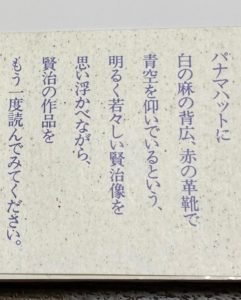 パナマハットに
白の麻の背広、赤の革靴で
青空を仰いでいるという、
明るく若々しい賢治像を
思い浮かべながら、
賢治の作品を
もう一度読んでみてください。